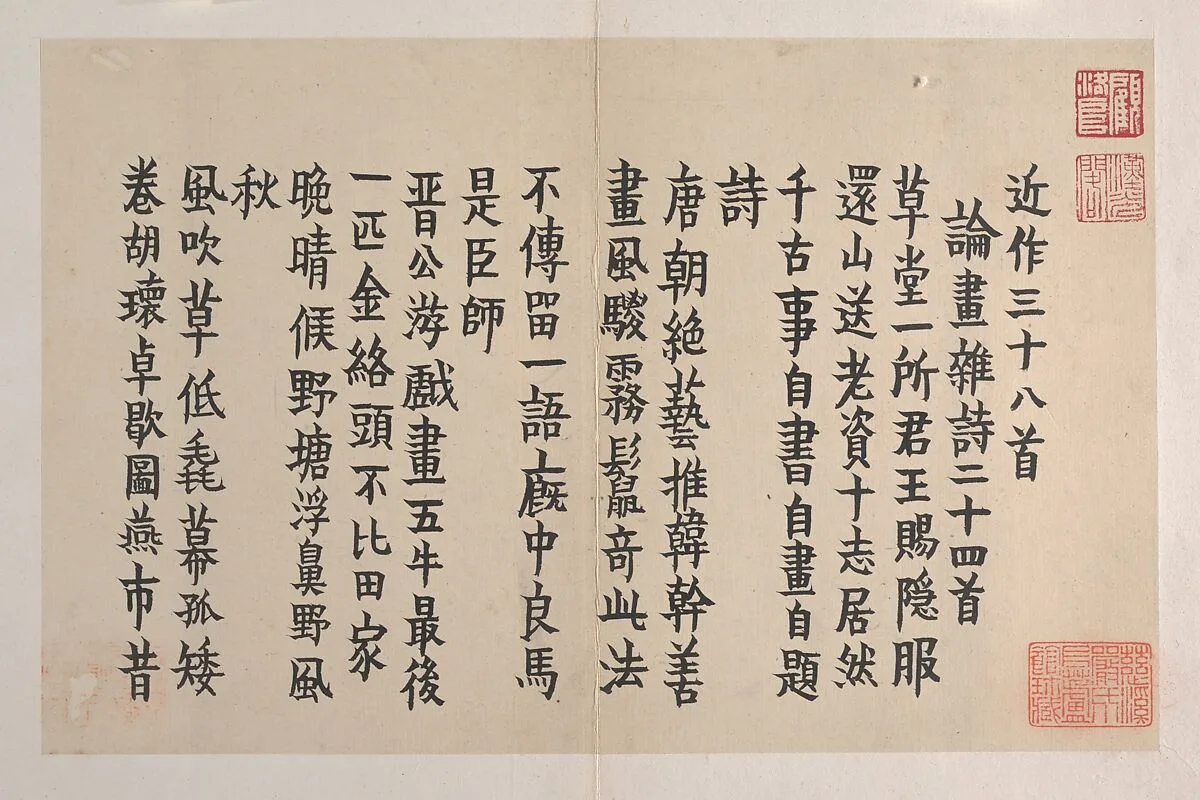 近作三十八首
論畫雜詩二十四首
草堂一所君王賜隱服
還山送老資十志居然
千古事自書自畫自題
詩
唐朝絶藝推韓幹善
畫風騣霧鬛奇此法
不傳留一語廄中良馬
是臣師
晋公游戲畫五牛最後
一匹金絡頭不比田家
晚晴候野塘浮鼻野風
秋
風吹草低毳幕孤矮
卷胡瓌卓歇圖燕市昔